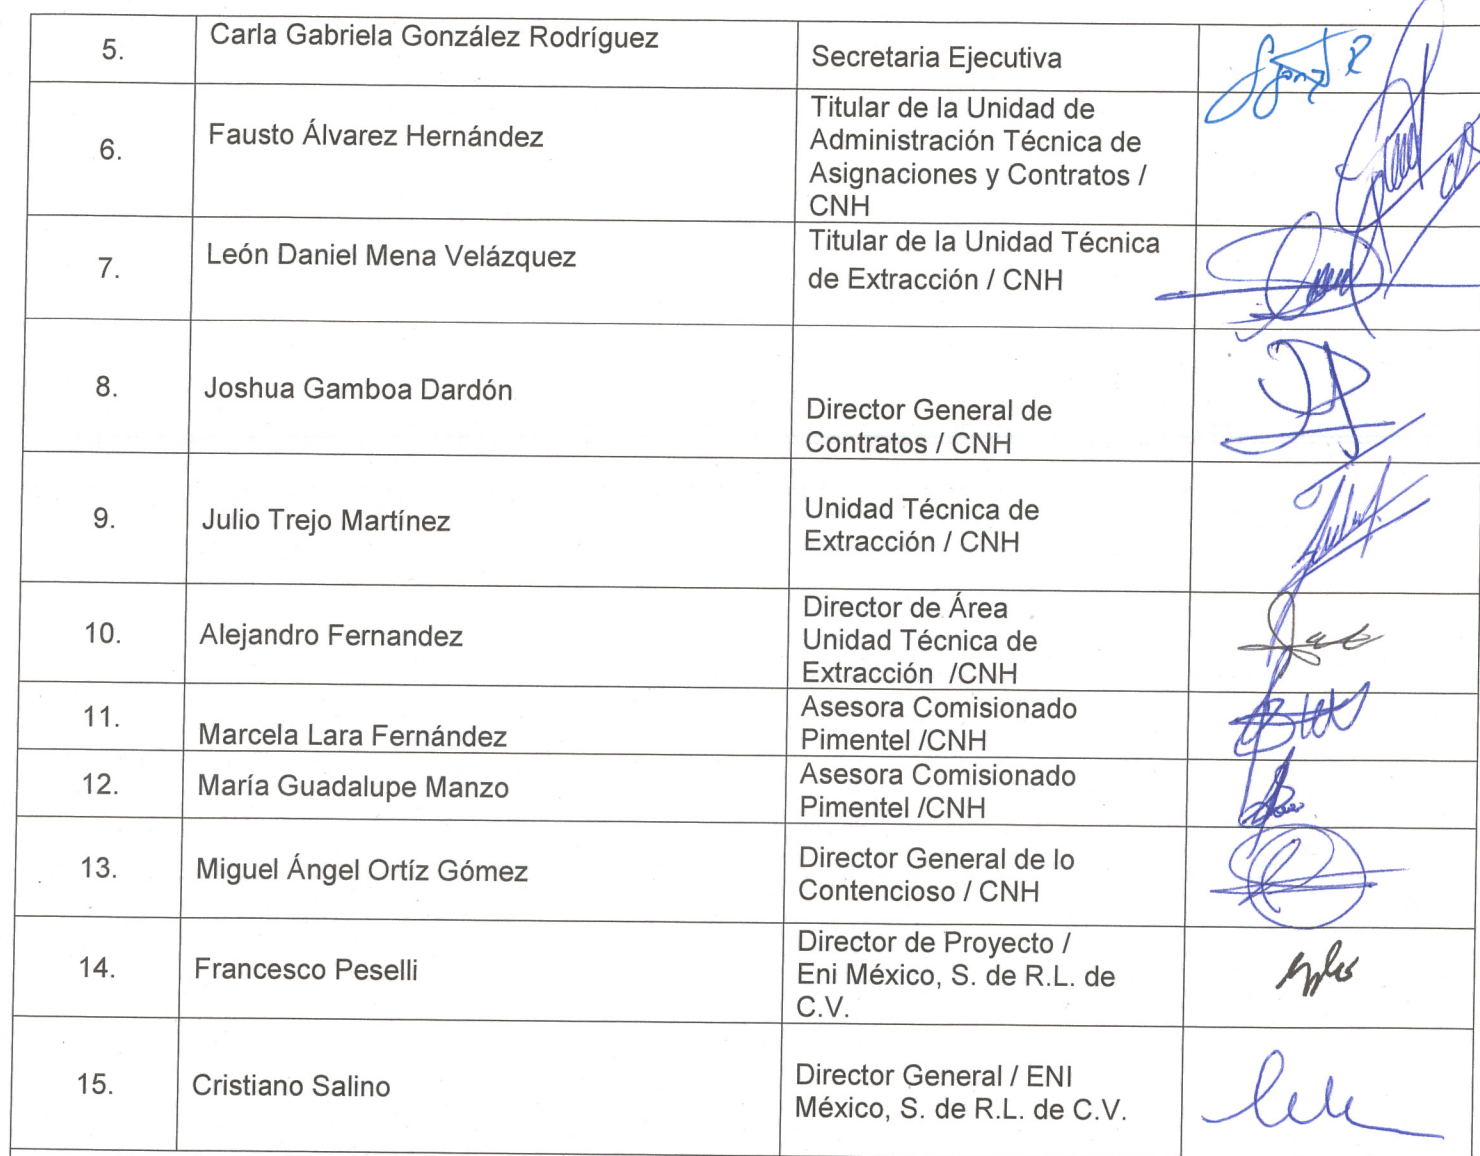 5. Carla Gabriela González Rodríguez
Secretaria Ejecutiva
6. Fausto Álvarez Hernández
Titular de la Unidad de
Administración Técnica de
Asignaciones y Contratos /
CNH
7. León Daniel Mena Velázquez
Titular de la Unidad Técnica
de Extracción / CNH
8. Joshua Gamboa Dardón
Director General de
Contratos / CNH
9. Julio Trejo Martínez
Unidad Técnica de
Extracción / CNH
10. Alejandro Fernandez
Director de Área
Unidad Técnica de
Extracción /CNH
11. Marcela Lara Fernández
Asesora Comisionado
Pimentel /CNH
12. María Guadalupe Manzo
Asesora Comisionado
Pimentel /CNH
13. Miguel Ángel Ortíz Gómez
Director General de lo
Contencioso / CNH
14. Francesco Peselli
Director de Proyecto /
Eni México, S. de R.L. de
C.V.
15. Cristiano Salino
Director General / ENI
México, S. de R.L. de C.V.